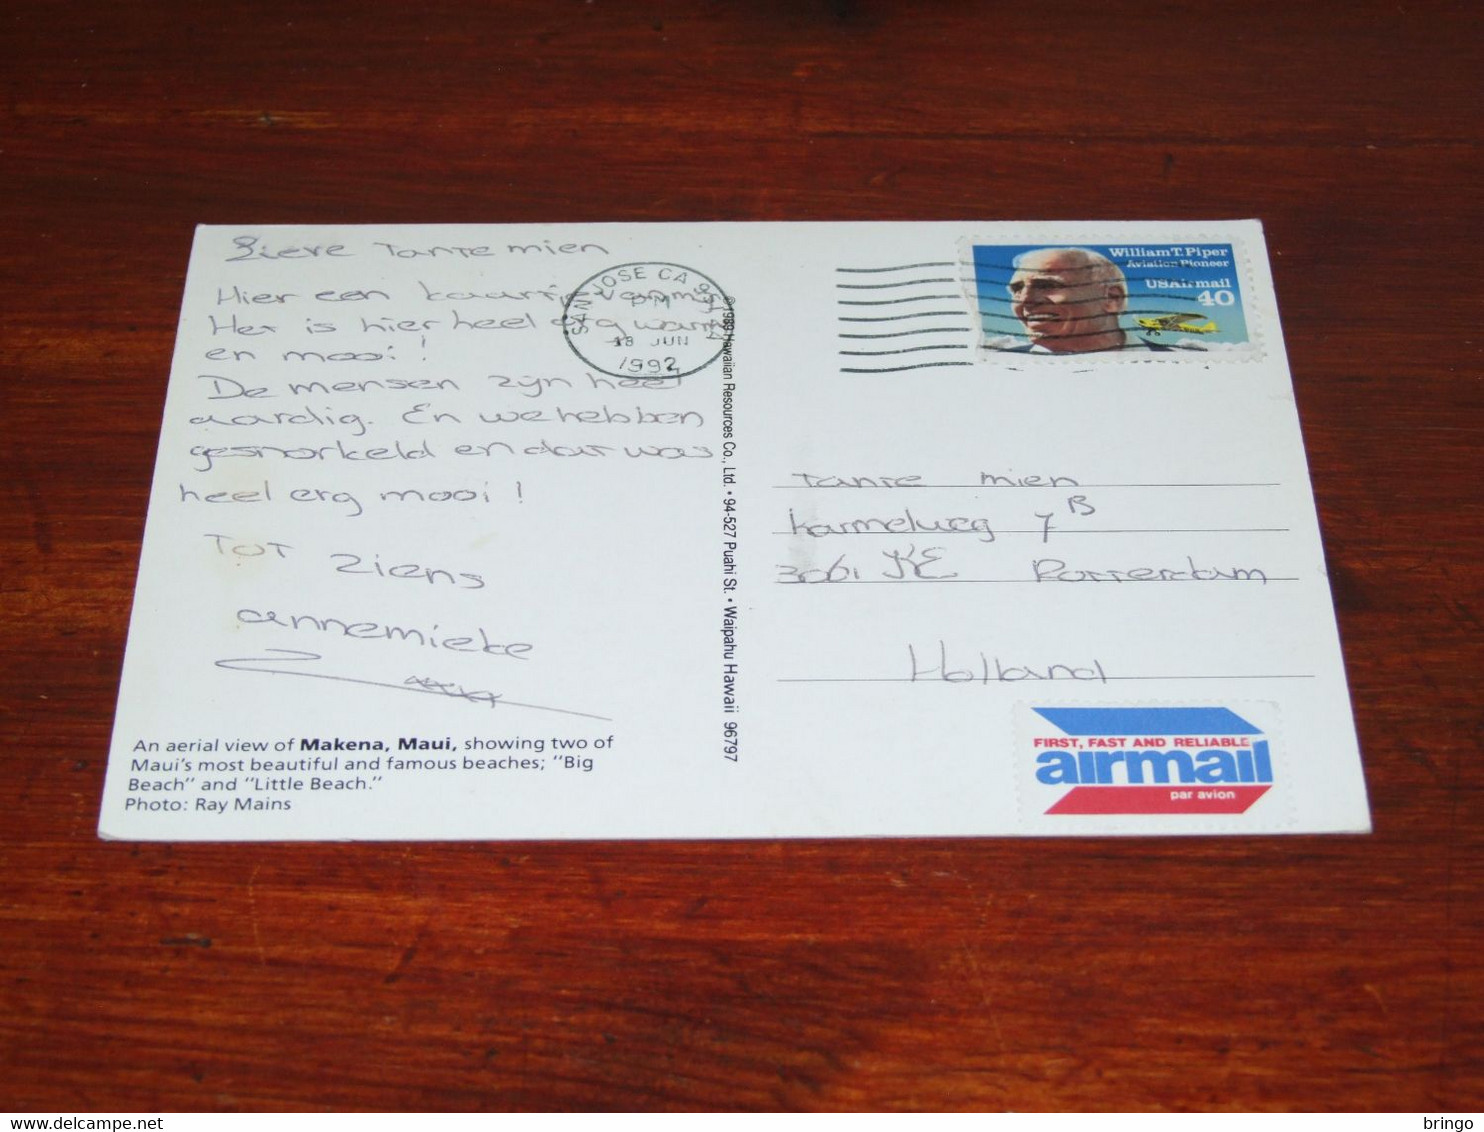 Lieve Tante mien
Hier een kaartje van mij
Het is hier heel erg warm
en mooi!
De mensen zijn heel
aardig. En we hebben
gesnorkeld en dat was
heel erg mooi!
Tot ziens
annemieke
An aerial view of Makena, Maui, showing two of
Maui's most beautiful and famous beaches; "Big
Beach" and "Little Beach."
Photo: Ray Mains
SAN JOSE CA
PM
18 JUN
1992
©1989 Hawaiian Resources Co., Ltd. • 94-527 Puahi St. • Waipahu Hawaii 96797
William T. Piper
Aviation Pioneer
USAirmail
40
Tante mien
Karmelweg 7B
3061 KE Rotterdam
Holland
FIRST, FAST AND RELIABLE
airmail
par avion
bringo